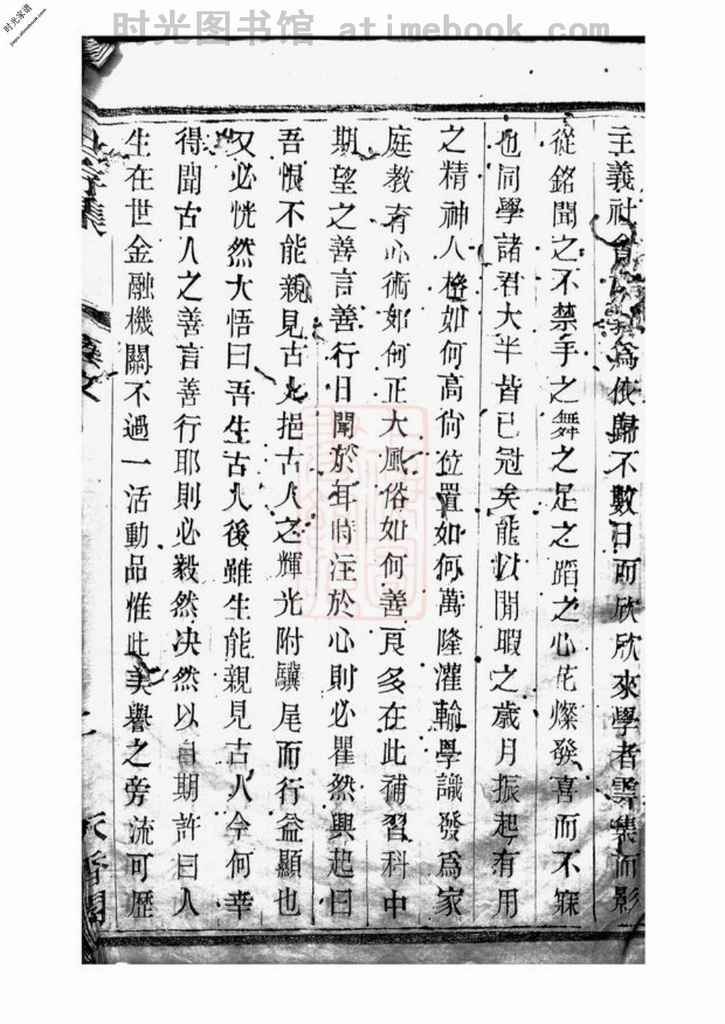 时光图书馆 atimebook.com
时光家谱
主義社會 為依歸不數日而欣欣來學者雲集而影
從銘聞之不禁手之舞之足之蹈之心花燦發喜而不寐
也同學諸君大半皆已冠矣能以閒暇之歲月振起有用
之精神人格如何高尙位置如何萬隆灌輸學識發為家
庭教育心術如何正大風俗如何善良多在此補習科中
期望之善言善行日聞於耳時注於心則必瞿然興起曰
吾恨不能親見古人挹古人之輝光附驥尾而行益顯也
又必恍然大悟曰吾生古人後雖生能親見古人今何幸
得聞古人之善言善行耶則必毅然决然以自期許曰人
生在世金融機關不過一活動品惟此美譽之旁流可歷
集
文
天香閣